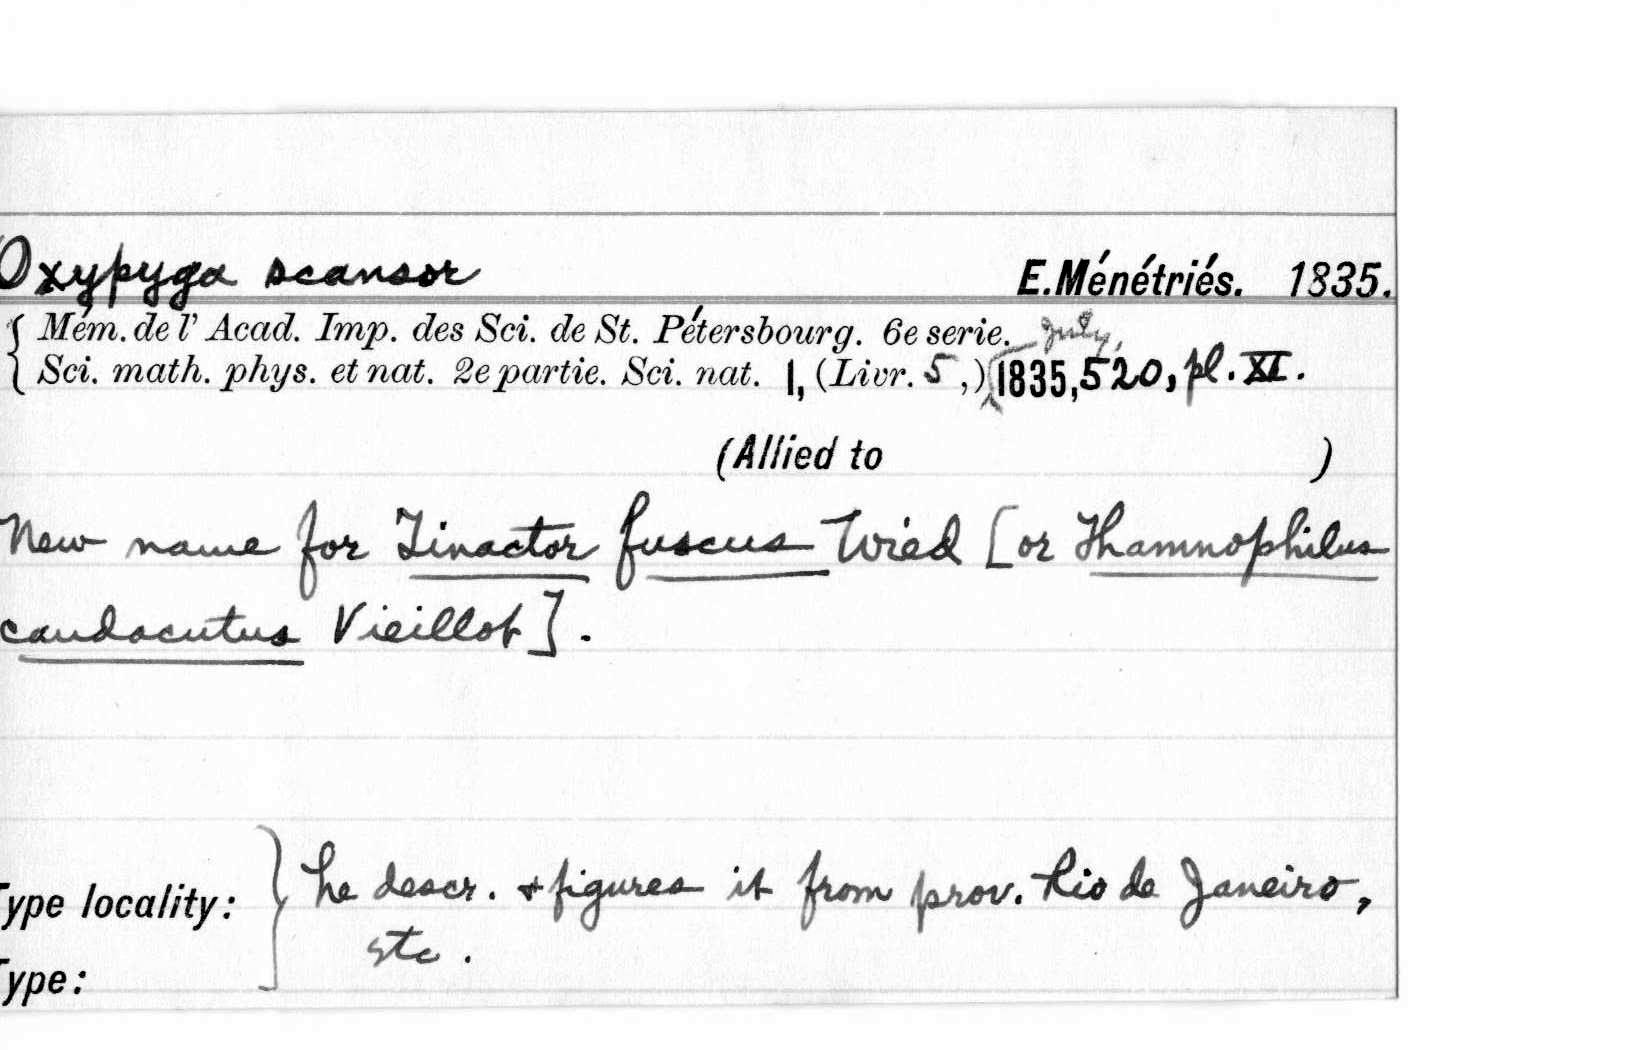 Oxypyga scansor E.Ménétriés. 1835.
Mém. de l' Acad. Imp. des Sci. de St. Pétersbourg. 6e serie. July,
Sci. math. phys. et nat. 2e partie. Sci. nat. 1, (Livr. 5,) 1835, 520, pl. XI.
(Allied to )
New name for Tinactor fuscus Wied [or Thamnophilus
caudacutus Vieillot].
Type locality: he descr. + figures it from prov. Rio de Janeiro,
etc.
Type: